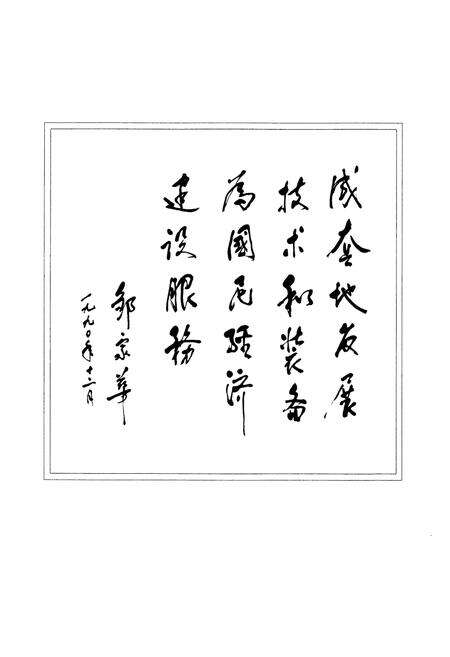 成套地发展
技术和装备
為國民経济
建设服務
邹家華
一九九〇年十二月